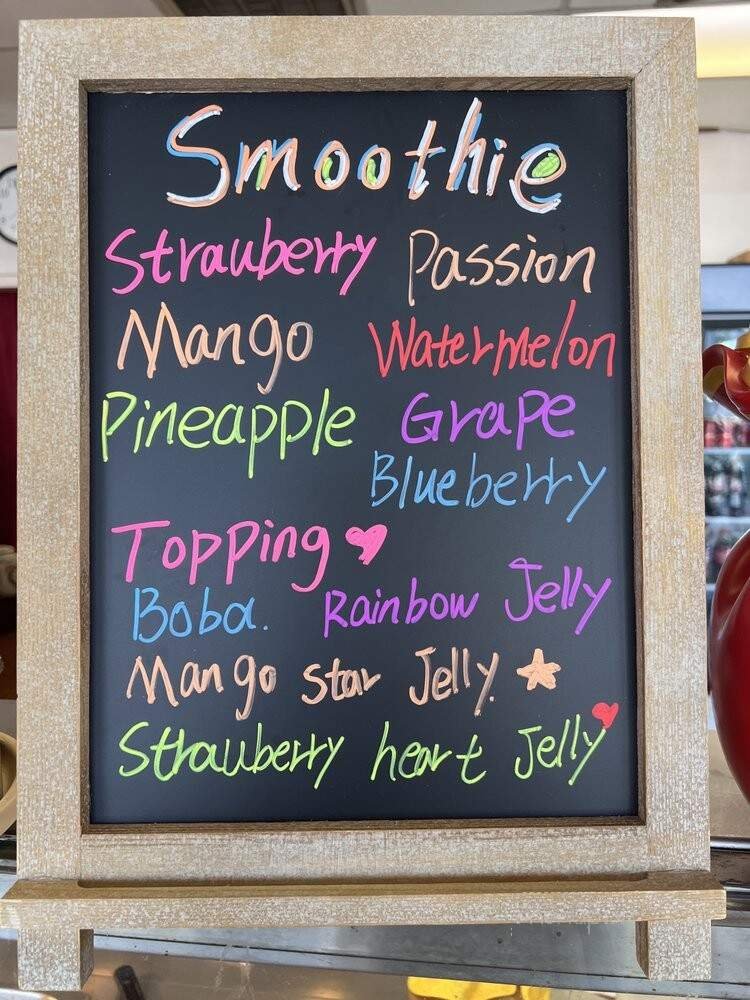 Smoothie
Strauberry Passion
Mango Watermelon
Pineapple Grape
Blueberry
Topping
Boba. Rainbow Jelly
Mango star Jelly
Strauberry heart Jelly